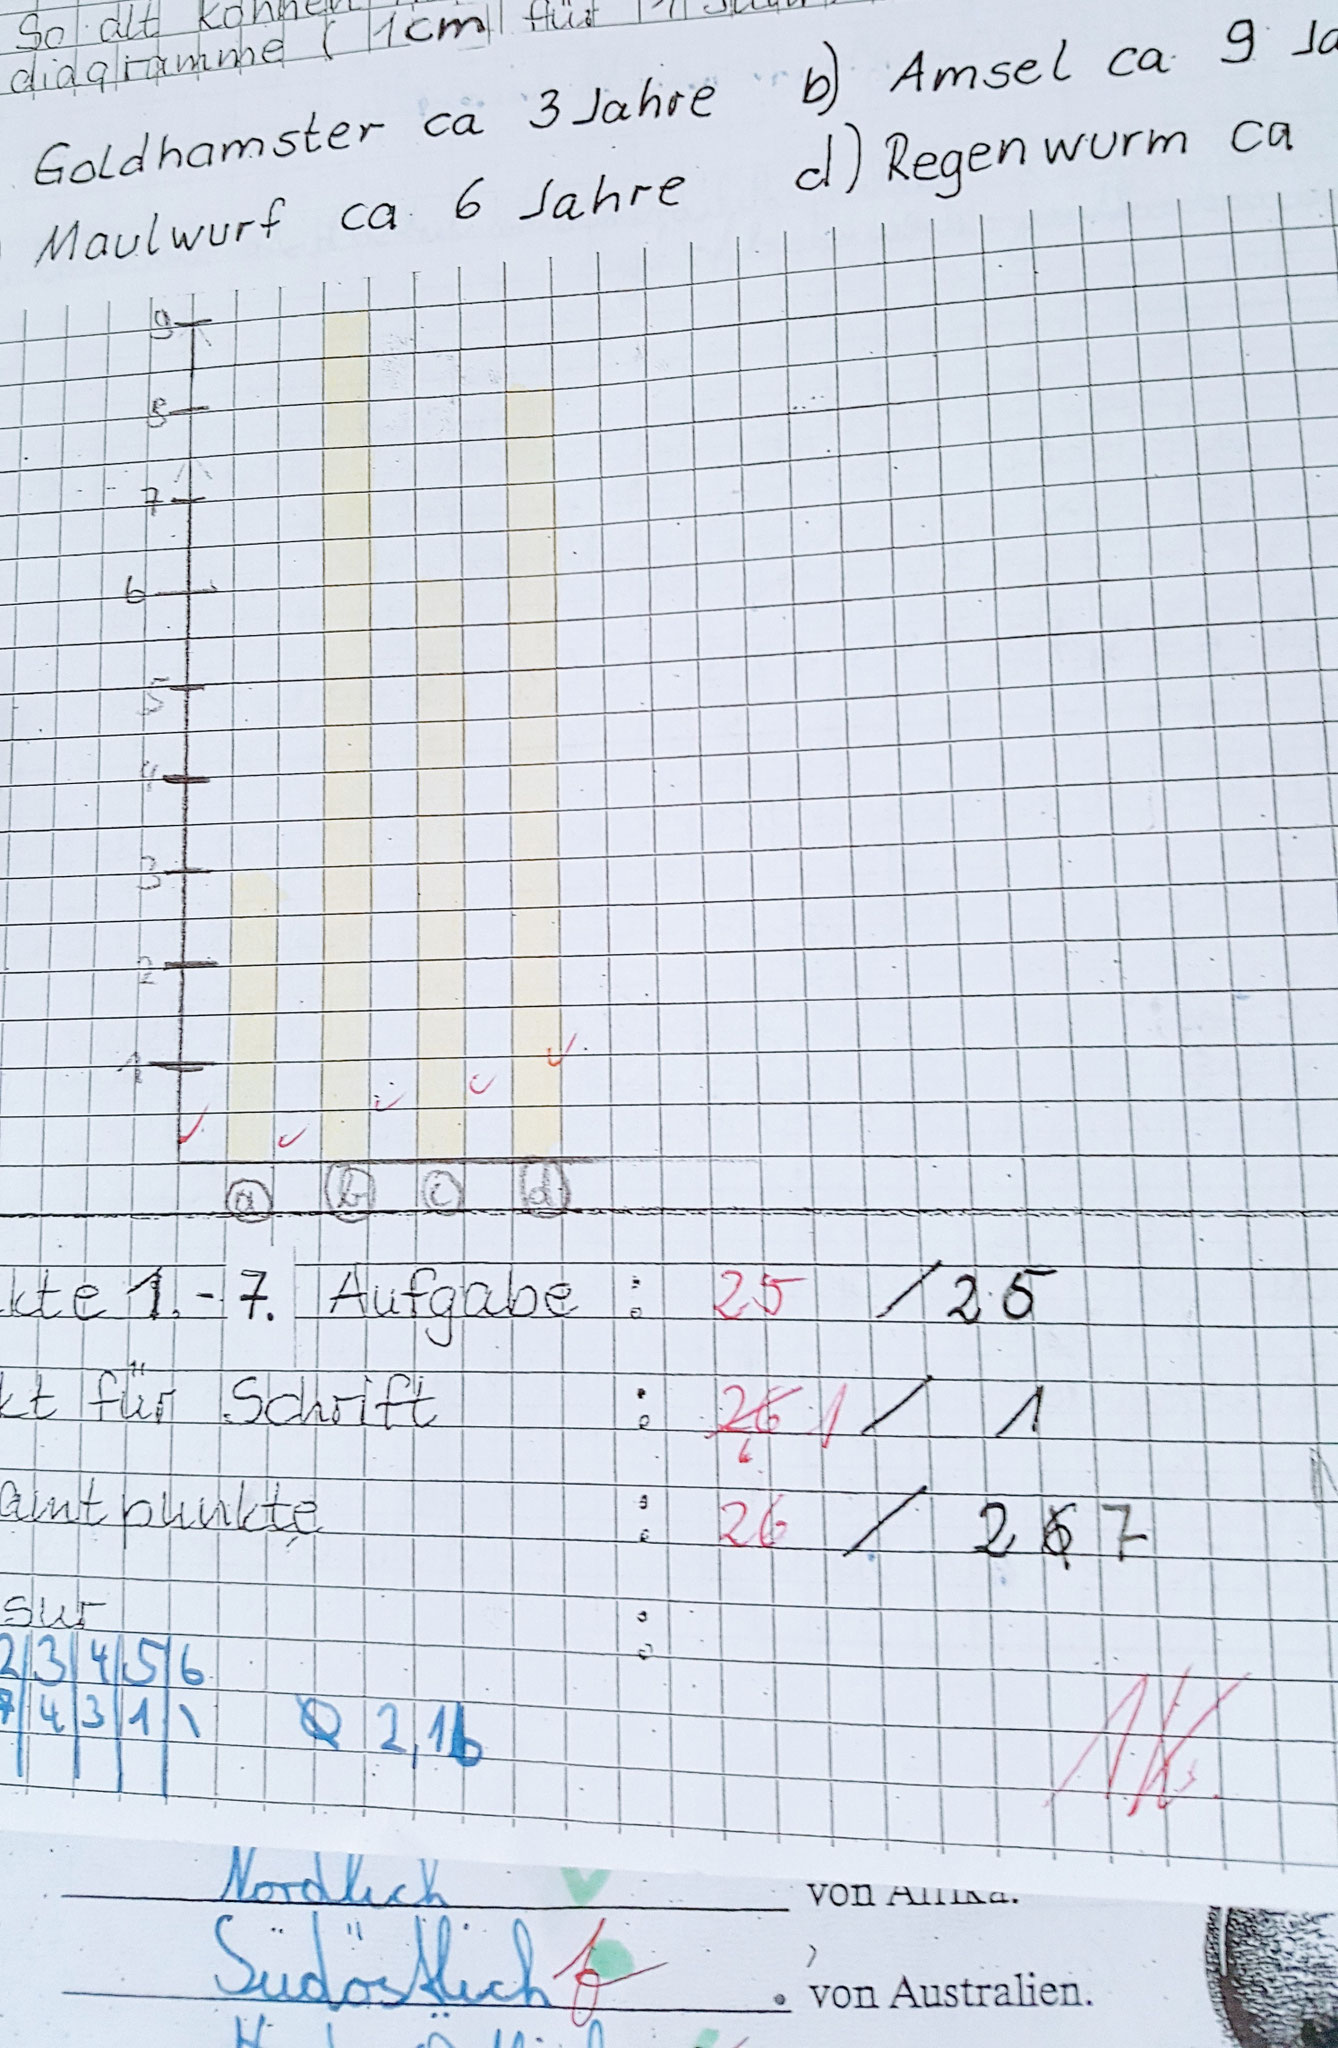 So alt können
diagramme (1cm für 1
Goldhamster ca 3 Jahre b) Amsel ca. 9 Ja
Maulwurf ca. 6 Jahre d) Regenwurm ca
9
8
7
6
5
4
3
2
1
a b c d
kte 1.-7. Aufgabe : 25 / 25
kt für Schrift : 26 1 / 1
amtpunkte : 26 / 26 7
sur :
2 3 4 5 6
7 4 3 1 \ Ø 2,16
Nördlich von Afrika.
Südöstlich f von Australien.